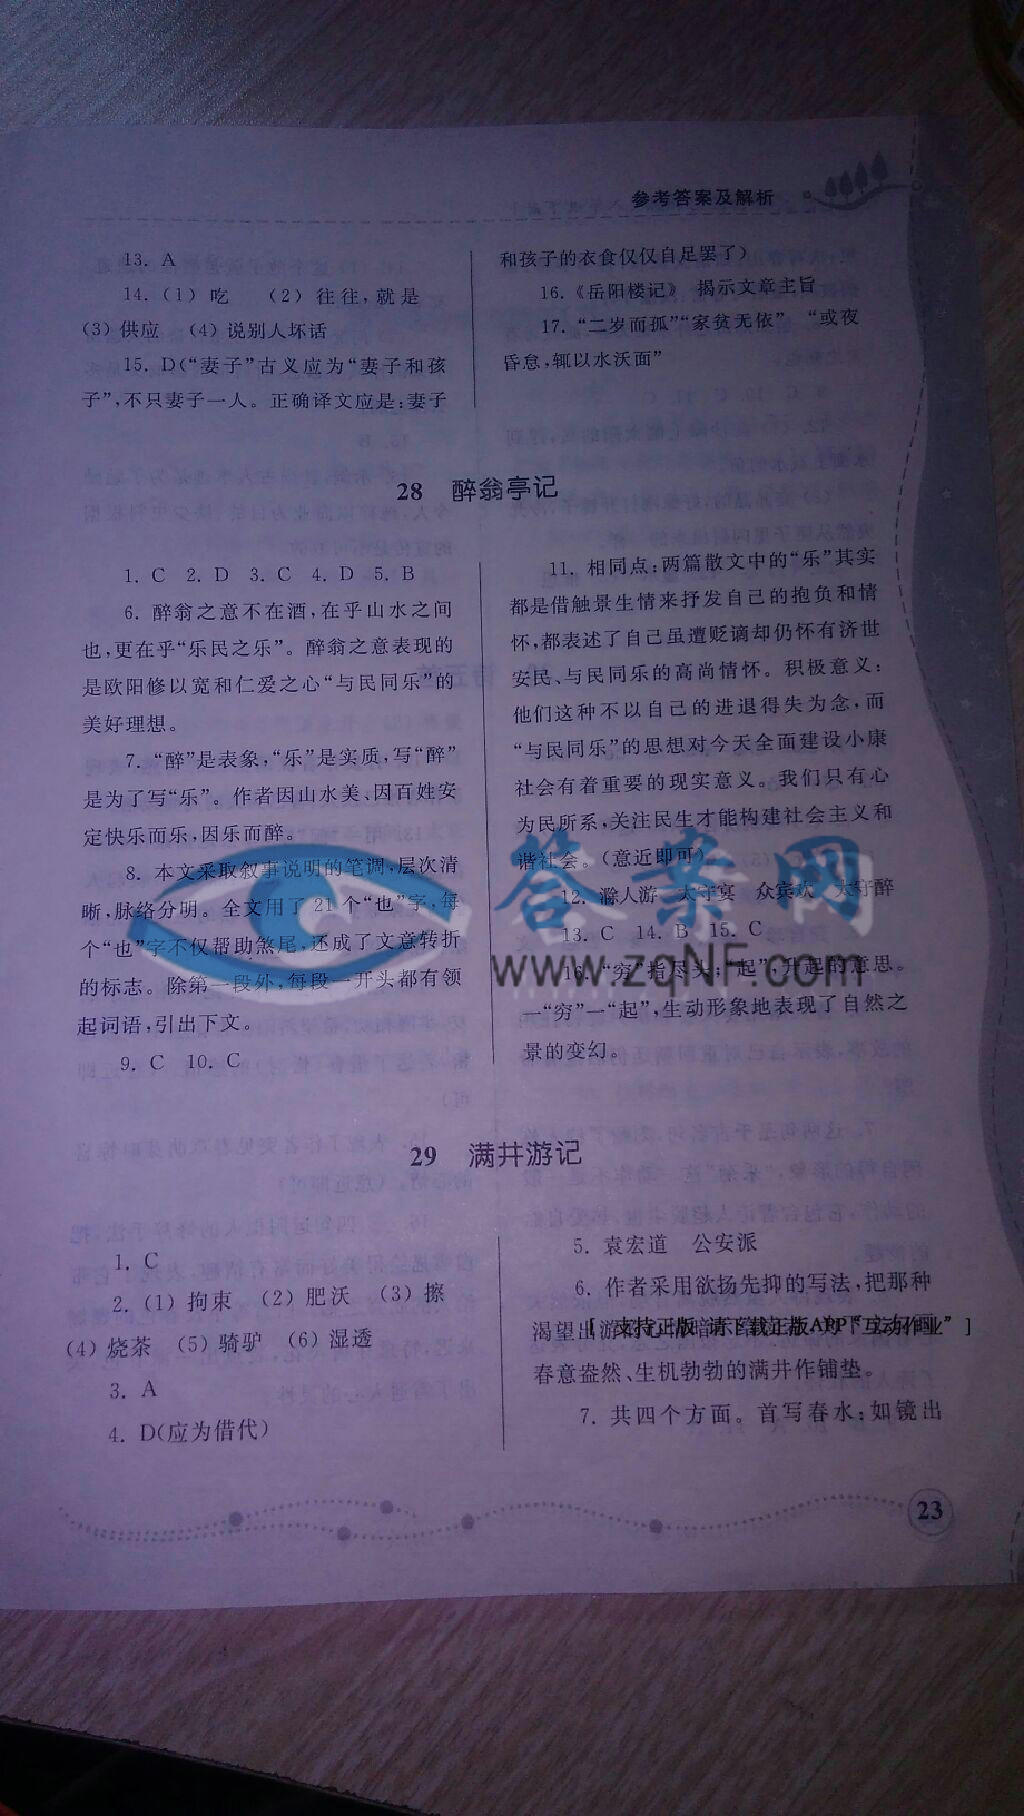 参考答案及解析
13. A
14.(1)吃 (2)往往,就是
(3)供应 (4)说别人坏话
15. D(“妻子”古义应为“妻子和孩
子”,不只妻子一人。正确译文应是:妻子
和孩子的衣食仅仅自足罢了)
16.《岳阳楼记》 揭示文章主旨
17. “二岁而孤”“家贫无依” “或夜
昏怠,辄以水沃面”
28 醉翁亭记
1. C 2. D 3. C 4. D 5. B
6. 醉翁之意不在酒,在乎山水之间
也,更在乎“乐民之乐”。醉翁之意表现的
是欧阳修以宽和仁爱之心“与民同乐”的
美好理想。
7. “醉”是表象,“乐”是实质,写“醉”
是为了写“乐”。作者因山水美、因百姓安
定快乐而乐,因乐而醉。
8. 本文采取叙事说明的笔调,层次清
晰,脉络分明。全文用了21个“也”字,每
个“也”字不仅帮助煞尾,还成了文意转折
的标志。除第一段外,每段一开头都有领
起词语,引出下文。
9. C 10. C
11. 相同点:两篇散文中的“乐”其实
都是借触景生情来抒发自己的抱负和情
怀,都表述了自己虽遭贬谪却仍怀有济世
安民、与民同乐的高尚情怀。积极意义:
他们这种不以自己的进退得失为念,而
“与民同乐”的思想对今天全面建设小康
社会有着重要的现实意义。我们只有心
为民所系,关注民生才能构建社会主义和
谐社会。(意近即可)
12. 滁人游 太守宴 众宾欢 太守醉
13. C 14. B 15. C
16. “穷”指尽头;“起”,升起的意思。
一“穷”一“起”,生动形象地表现了自然之
景的变幻。
答案网
www.zqNF.com
29 满井游记
1. C
2. (1)拘束 (2)肥沃 (3)擦
(4)烧茶 (5)骑驴 (6)湿透
3. A
4. D(应为借代)
5. 袁宏道 公安派
6. 作者采用欲扬先抑的写法,把那种
渴望出游的心
[ 支持正版 请下载正版APP“互动作业” ]
春意盎然、生机勃勃的满井作铺垫。
7. 共四个方面。首写春水:如镜出
23